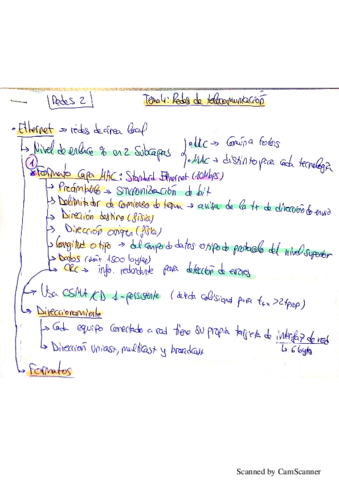 Redes 2
Tema 4: Redes de telecomunicación
• Ethernet → redes de área local
→ Nivel de enlace en 2 subcapas
LLC → Común a todos
MAC → distinto para cada tecnología
1
Formato capa MAC: Standard Ethernet (10Mbps)
→ Preámbulo → sincronización de bit
→ Delimitador de comienzo de trama → avisa de la de dirección de envío
→ Dirección destino (física)
→ Dirección origen (física)
→ Longitud o tipo → del campo de datos o tipo de protocolo del nivel superior
→ Datos (máx 1500 bytes)
→ CRC → info. redundante para detección de errores
→ Usa CSMA/CD 1-persistente (detecta colisiones para
→ Direccionamiento
→ Cada equipo conectado a red tiene su propia tarjeta de interfaz de red
↳ 6 bytes
→ Dirección unicast, multicast y broadcast
→ Formatos
Scanned by CamScanner